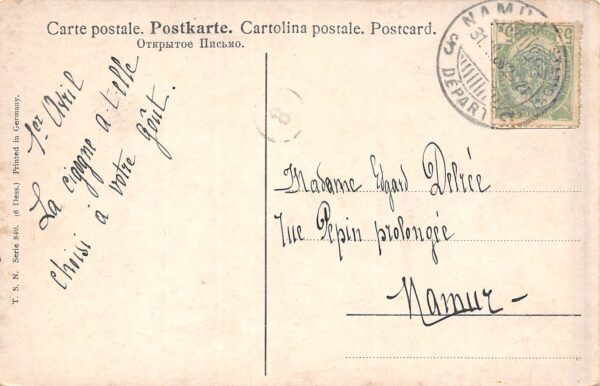 Carte postale. Postkarte. Cartolina postale. Postcard.
Открытое Письмо.
NAMUR
DÉPART
5
5
8
1er Avril
La cigogne a-t-elle
choisi à votre goût.
Madame Edgard Delrée
rue Pepin prolongée
Namur
T. S. N. Serie 840. (6 Dess.) Printed in Germany.